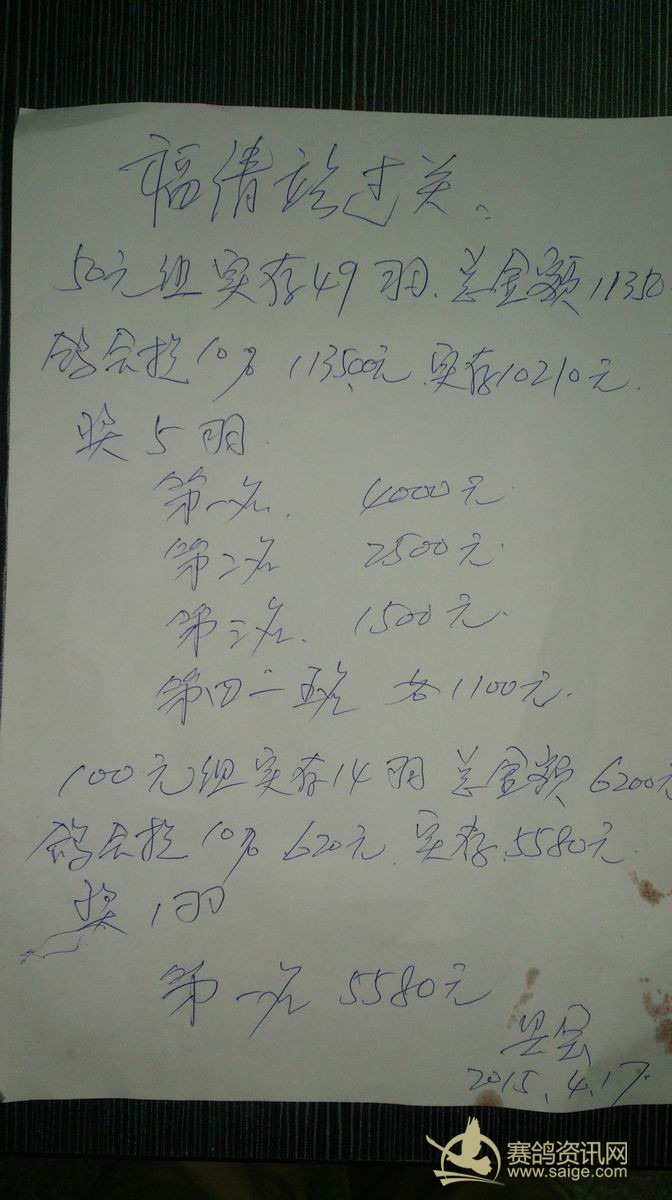 福清站过关、
50元组实存49羽.总金额11350
鸽会提10% 1135.00元.实存10210元.
奖5羽.
第一名. 4000元.
第二名 2500元.
第三名. 1500元.
第四一五名 各1100元.
100元组实存14羽 总金额6200元
鸽会提10% 620元.实存.5580元.
奖1羽
第一名 5580元
2015.4.17.
赛鸽资讯网
www.saige.com